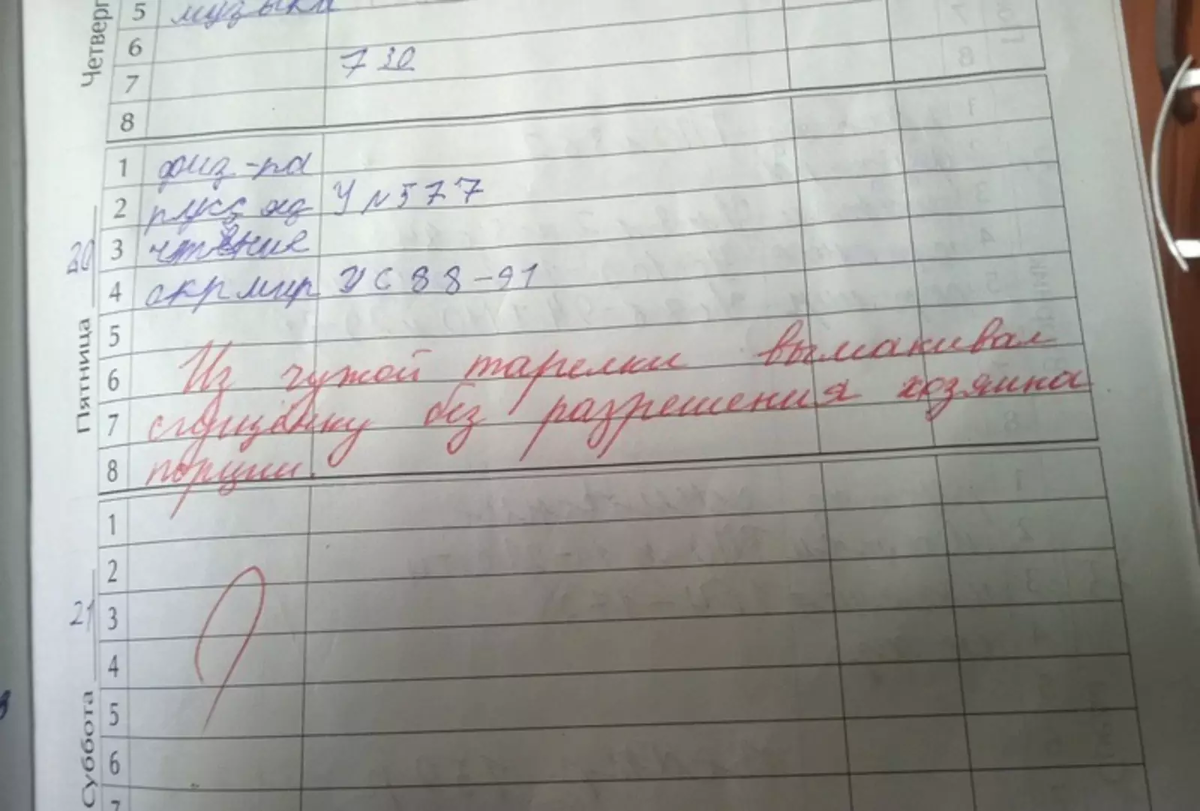 Четверг
5 музыка
6
7 730
8
Пятница 20
1 физ-ра
2 русс яз У N 577
3 чтение
4 окр мир У С 88-91
5
6 Из чужой тарелки вымакивал
7 сгущёнку без разрешения хозяина
8 порции.
Суббота 21
1
2
3
4
5
6
7